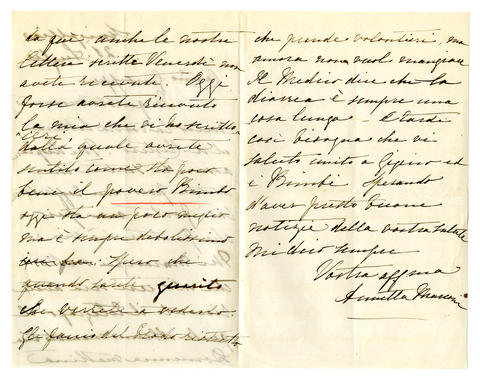 da qui anche le nostre
lettere scritte Venerdì non
avete ricevute Oggi
forse avrete ricevuto
la mia che vi ho scritto
ieri
dalla quale avrete
sentito come sta poco
bene il povero Bimbo
oggi sta un poco meglio
ma è sempre debolissimo
Spero che
quando sarete guarito
che verrete a vederlo
Gli fanno del brodo ristretto
che prende volontieri, ma
ancora non vuol mangiare
Il Medico dice che la
diarrea è sempre una
cosa lunga È tardi
così bisogna che vi
saluto unito a Gigino ed
i Bimbi sperando
d'aver presto buone
notizie della vostra salute
mi dico sempre
Vostra affma
Annetta